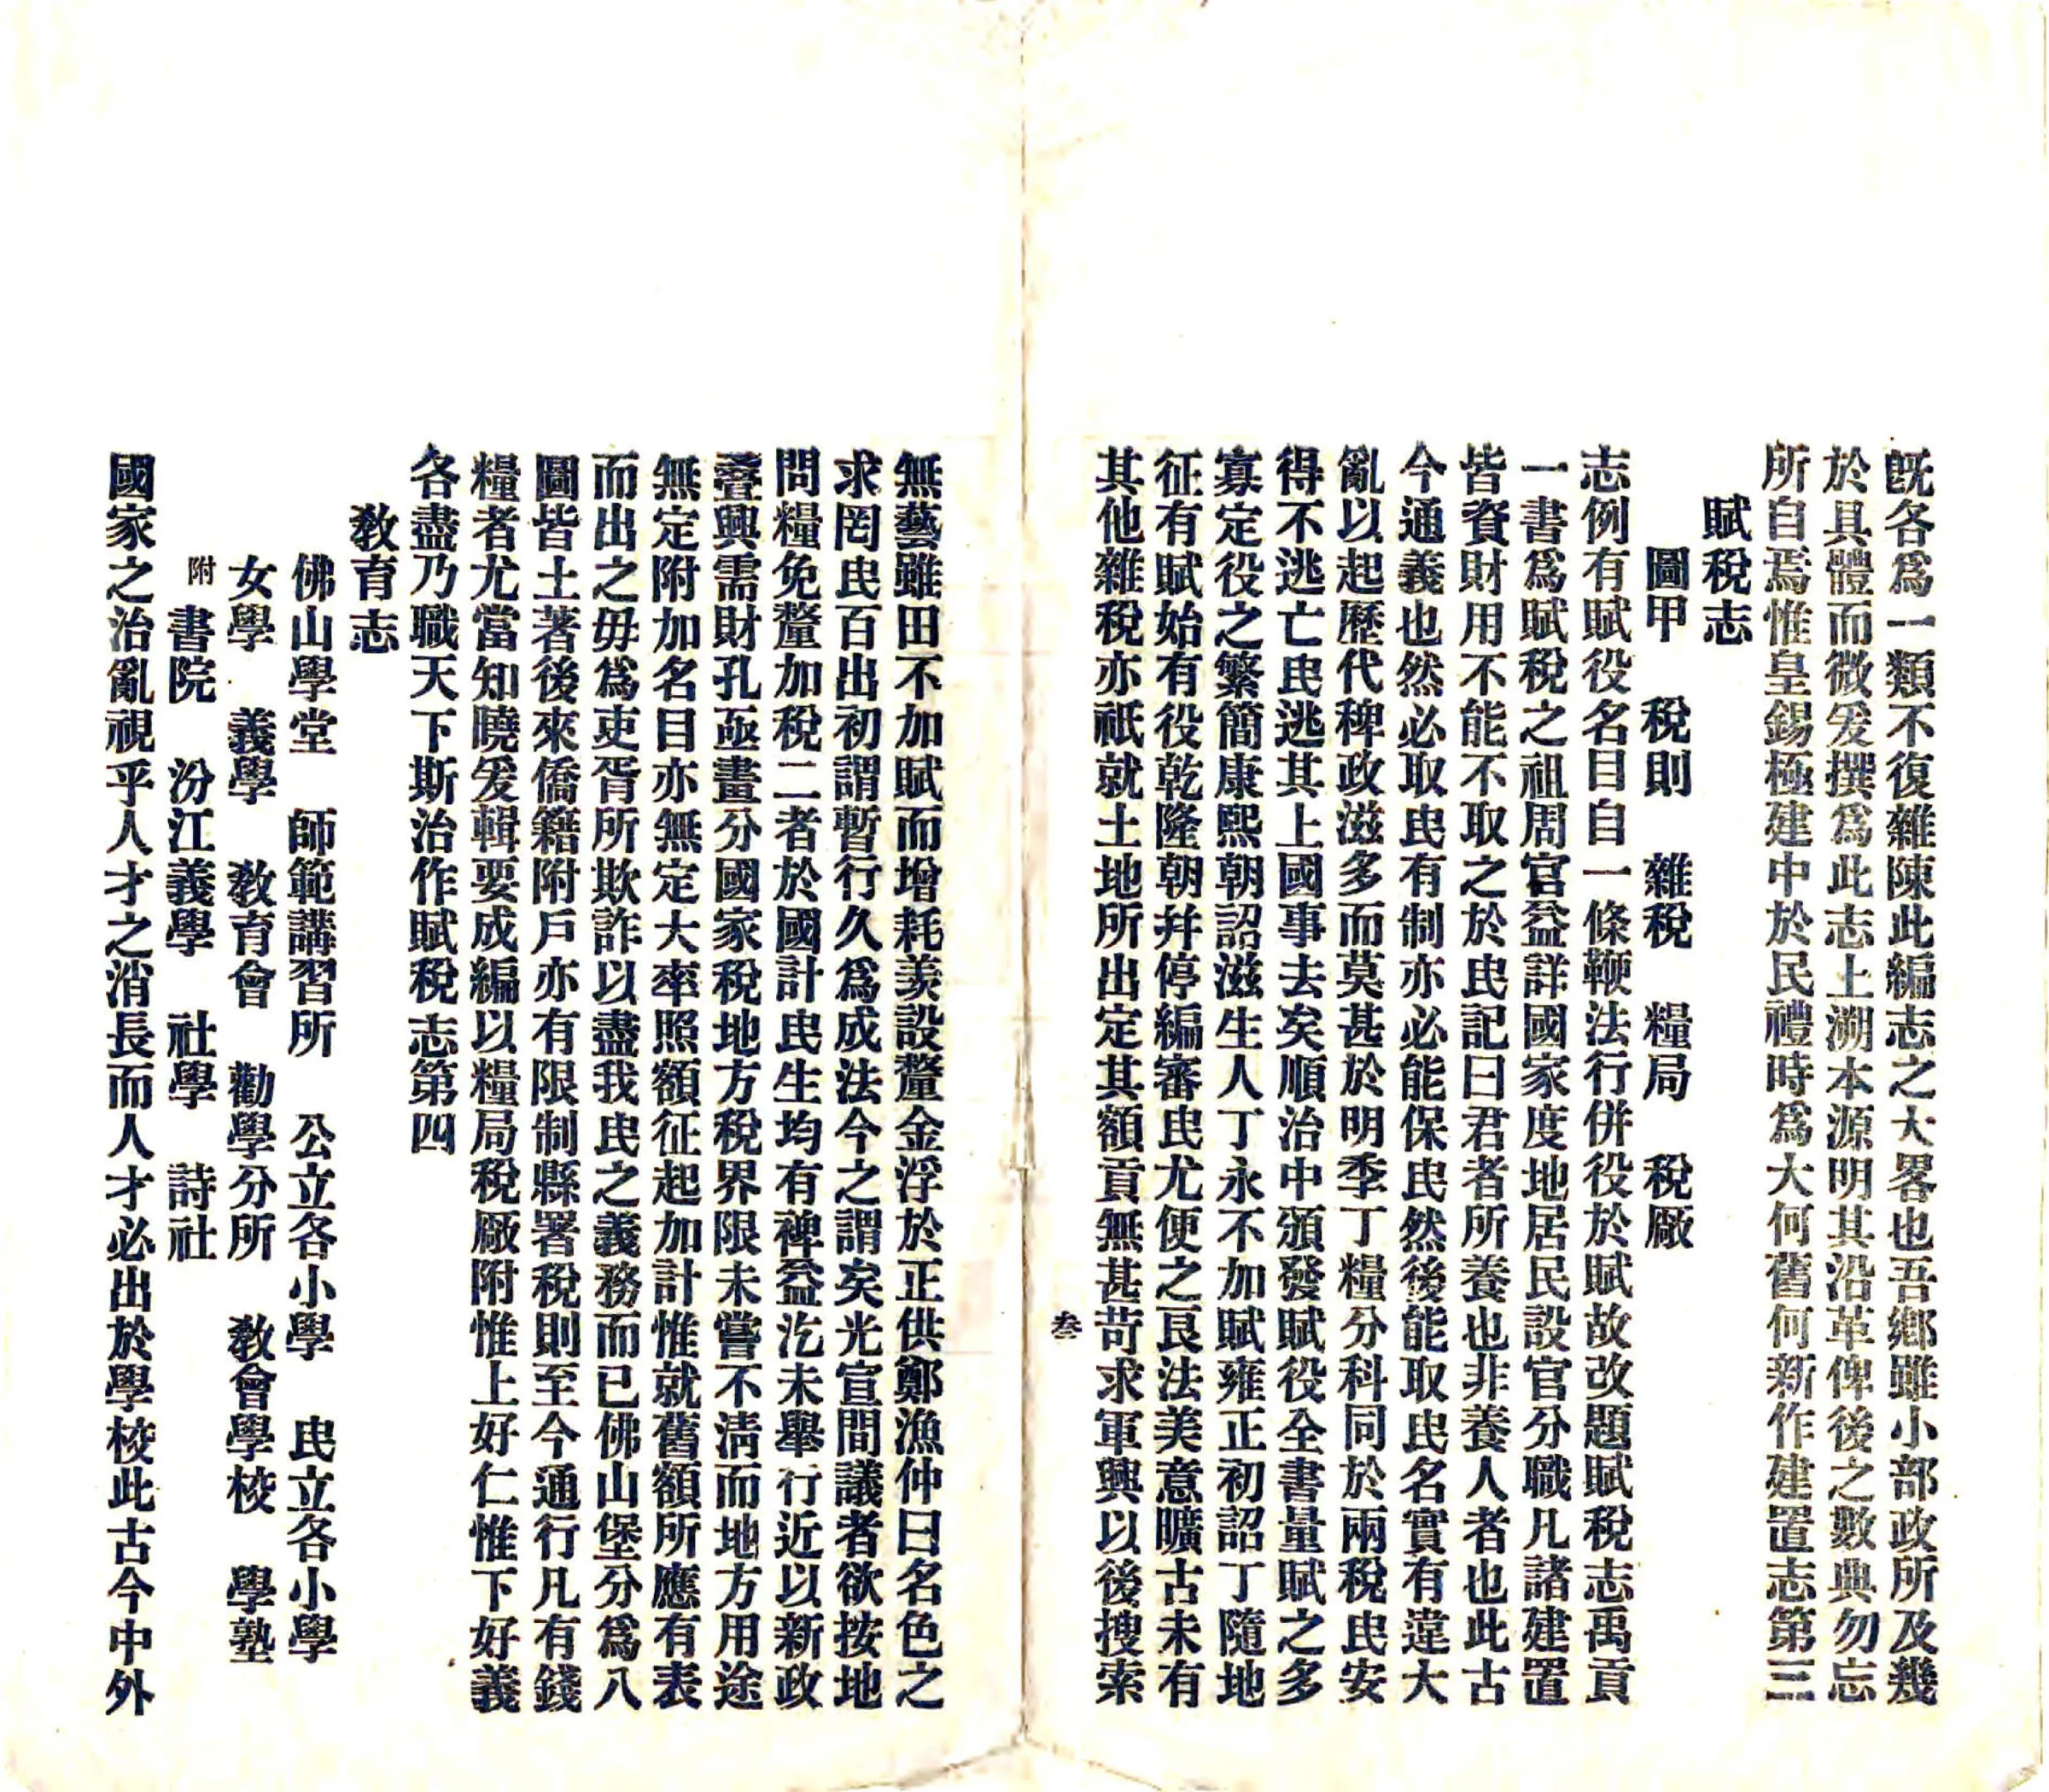 旣各爲一類不復雜陳此編志之大畧也吾鄉雖小部政所及幾
於具體而微爰撰爲此志上溯本源明其沿革俾後之數典勿忘
所自焉惟皇錫極建中於民禮時爲大何舊何新作建置志第三
賦稅志
圖甲 稅則 雜稅 糧局 稅厰
志例有賦役名目自一條鞭法行併役於賦故改題賦稅志禹貢
一書爲賦稅之祖周官益詳國家度地居民設官分職凡諸建置
皆資財用不能不取之於民記曰君者所養也非養人者也此古
今通義也然必取民有制亦必能保民然後能取民名實有違大
亂以起歷代稗政滋多而莫甚於明季丁糧分科同於兩稅民安
得不逃亡民逃其上國事去矣順治中頒發賦役全書量賦之多
寡定役之繁簡康熙朝詔滋生人丁永不加賦雍正初詔丁隨地
征有賦始有役乾隆朝幷停編審民尤便之良法美意曠古未有
其他雜稅亦祇就土地所出定其額貢無甚苛求軍興以後搜索
叁
無藝雖田不加賦而增耗羨設釐金浮於正供鄭漁仲曰名色之
求罔民百出初謂暫行久爲成法今之謂矣光宣間議者欲按地
問糧免釐加稅二者於國計民生均有裨益汔未舉行近以新政
疊興需財孔亟畫分國家稅地方稅界限未嘗不淸而地方用途
無定附加名目亦無定大率照額征起加計惟就舊額所應有表
而出之毋爲吏胥所欺詐以盡我民之義務而已佛山堡分爲八
圖皆土著後來僑籍附戶亦有限制縣署稅則至今通行凡有錢
糧者尤當知曉爰輯要成編以糧局稅厰附惟上好仁惟下好義
各盡乃職天下斯治作賦稅志第四
敎育志
佛山學堂 師範講習所 公立各小學 民立各小學
女學 義學 敎育會 勸學分所 敎會學校 學塾
附 書院 汾江義學 社學 詩社
國家之治亂視乎人才之消長而人才必出於學校此古今中外